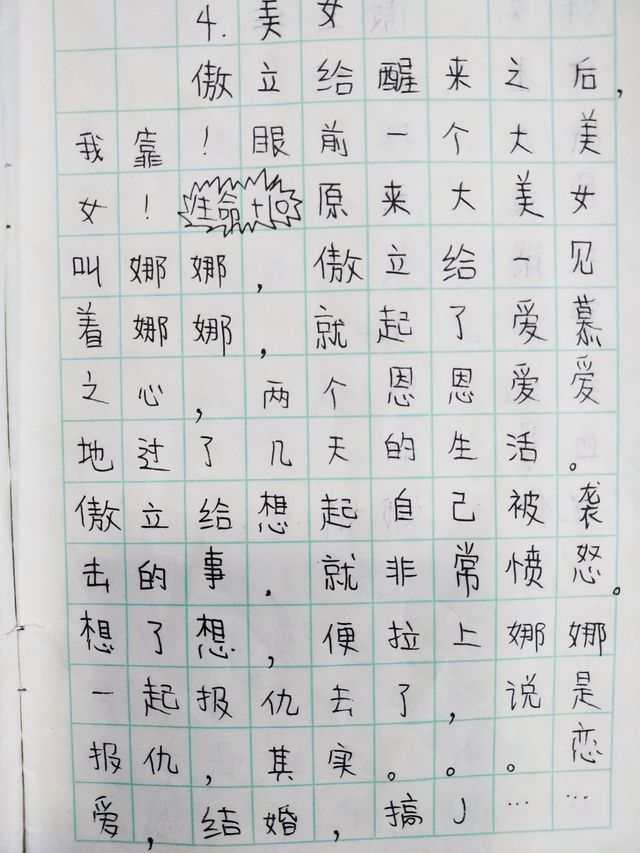 4.美女
傲立给醒来之后,
我靠!眼前一个大美
女!生命+10原来大美女
叫娜娜,傲立给一见
着娜娜,就起了爱慕
之心,两个恩恩爱爱
地过了几天的生活。
傲立给想起自己被袭
击的事.就非常愤怒。
想了想,便拉上娜娜
一起报仇去了,说是
报仇,其实。。。恋
爱,结婚,搞J……